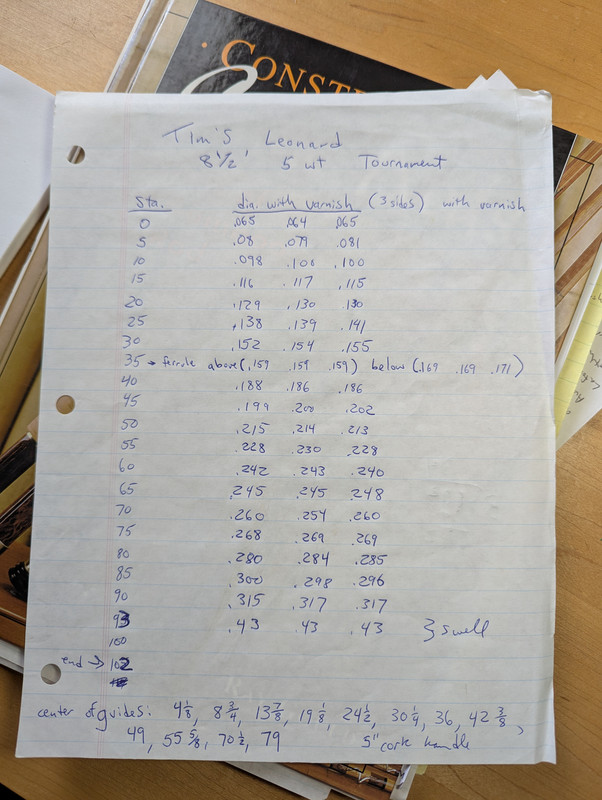 CONST
Tim's Leonard
8 1/2' 5 wt Tournament
Sta. dia. with varnish (3 sides) with varnish
0 .065 .064 .065
5 .08 .079 .081
10 .098 .100 .100
15 .116 .117 .115
20 .129 .130 .130
25 .138 .139 .141
30 .152 .154 .155
35 → ferrule above (.159 .159 .159) below (.169 .169 .171)
40 .188 .186 .186
45 .199 .200 .202
50 .215 .214 .213
55 .228 .230 .228
60 .242 .243 .240
65 .245 .245 .248
70 .260 .254 .260
75 .268 .269 .269
80 .280 .284 .285
85 .300 .298 .296
90 .315 .317 .317
93 .43 .43 .43 } swell
100
end → 102
center of guides: 4 1/8, 8 3/4, 13 7/8, 19 1/8, 24 1/2, 30 1/4, 36, 42 3/8,
49, 55 5/8, 70 1/2, 79 5" cork handle